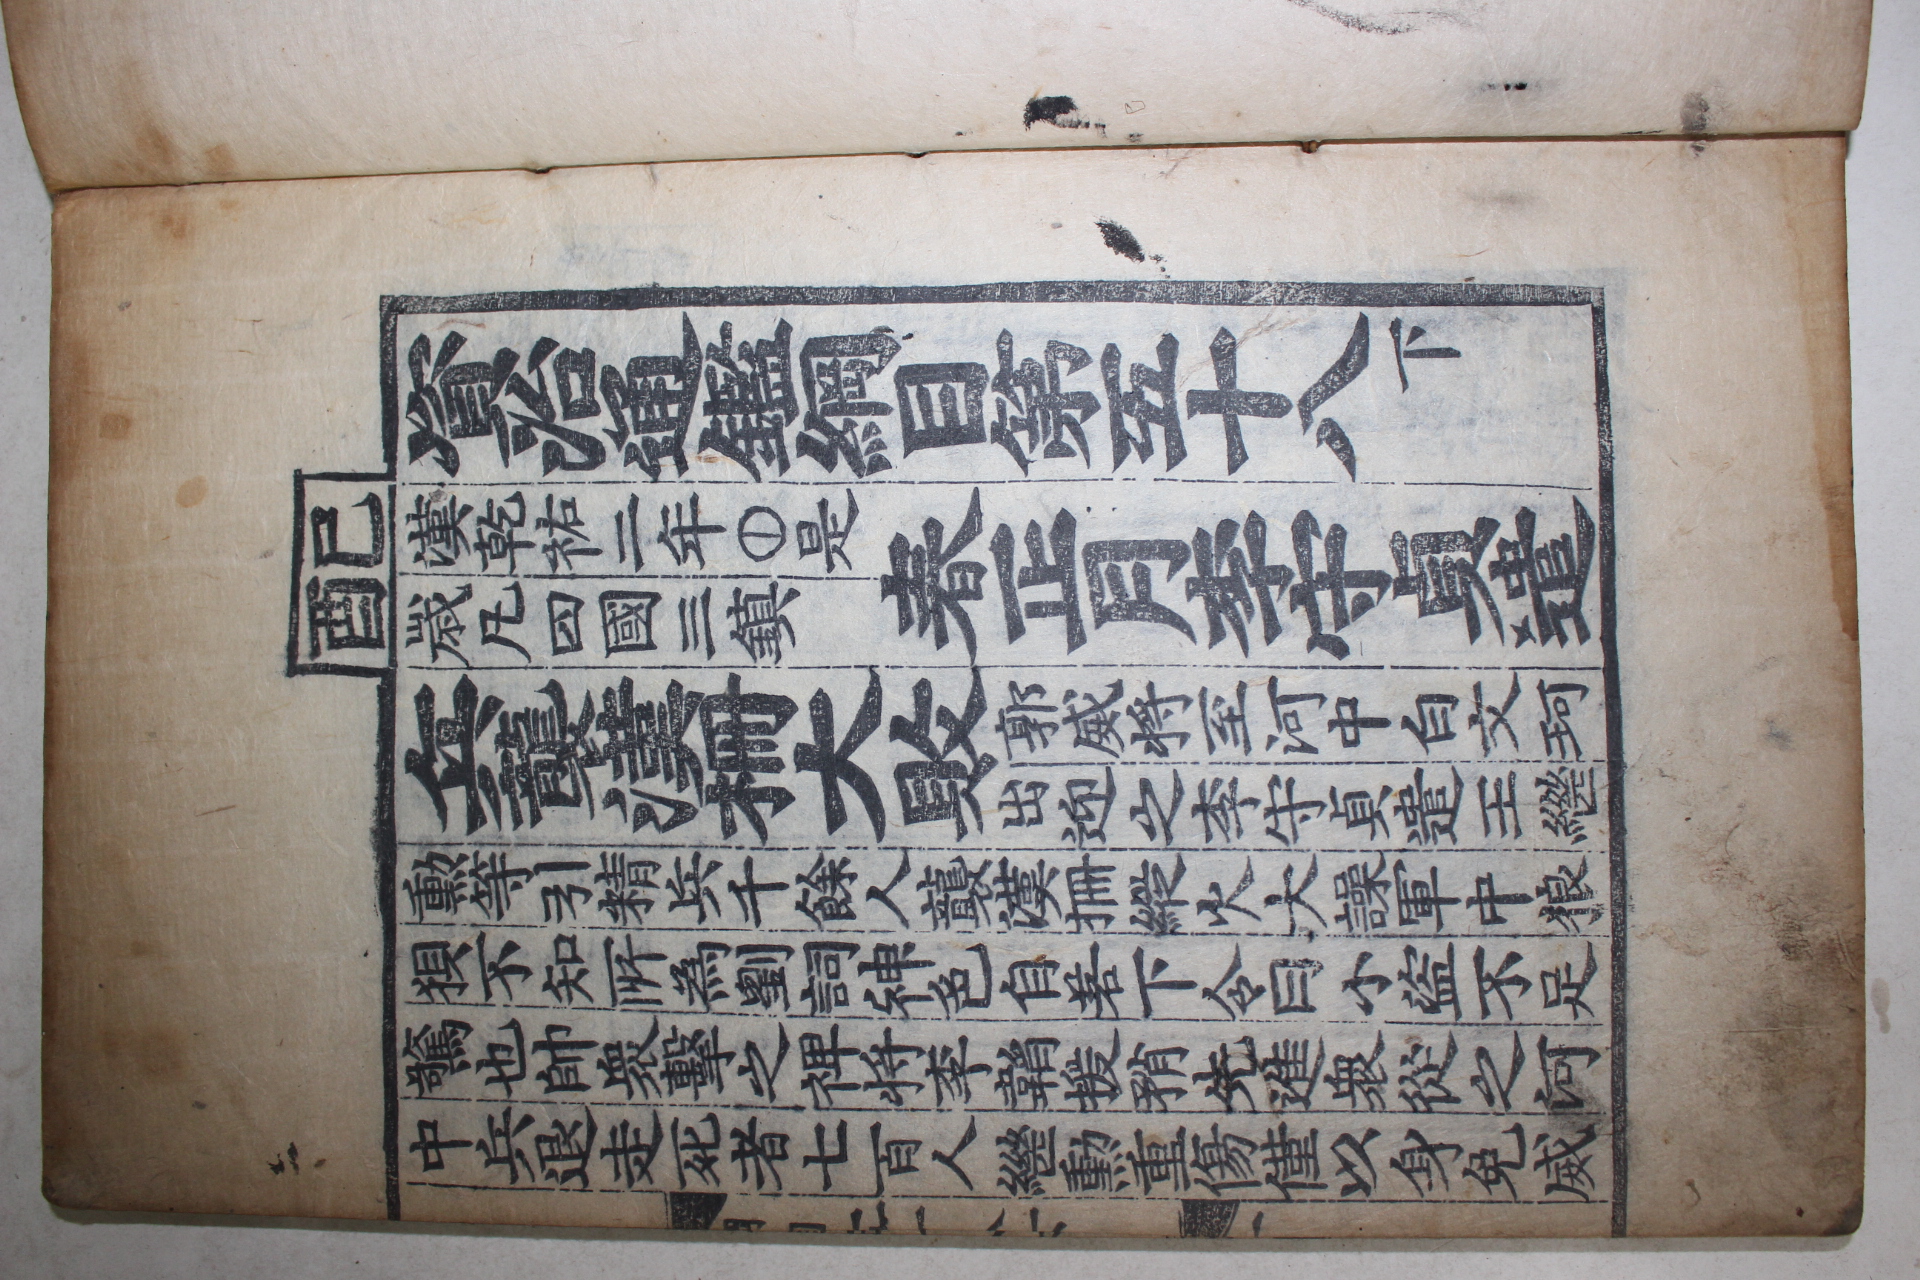 資治通鑑綱目第五十八下
己酉
漢乾祐二年〇是
歲凡四國三鎮
春正月李守貞遣
兵襲漢柵大敗
郭威將至河中白文珂
出迎之李守貞遣王繼
勳等引精兵千餘人襲漢柵縱火大譟軍中狼
狽不知所爲劉詞神色自若下令曰小盜不足
驚也帥衆擊之裨將李韜援矟先進衆從之河
中兵退走死者七百人繼勳重傷僅以身免威